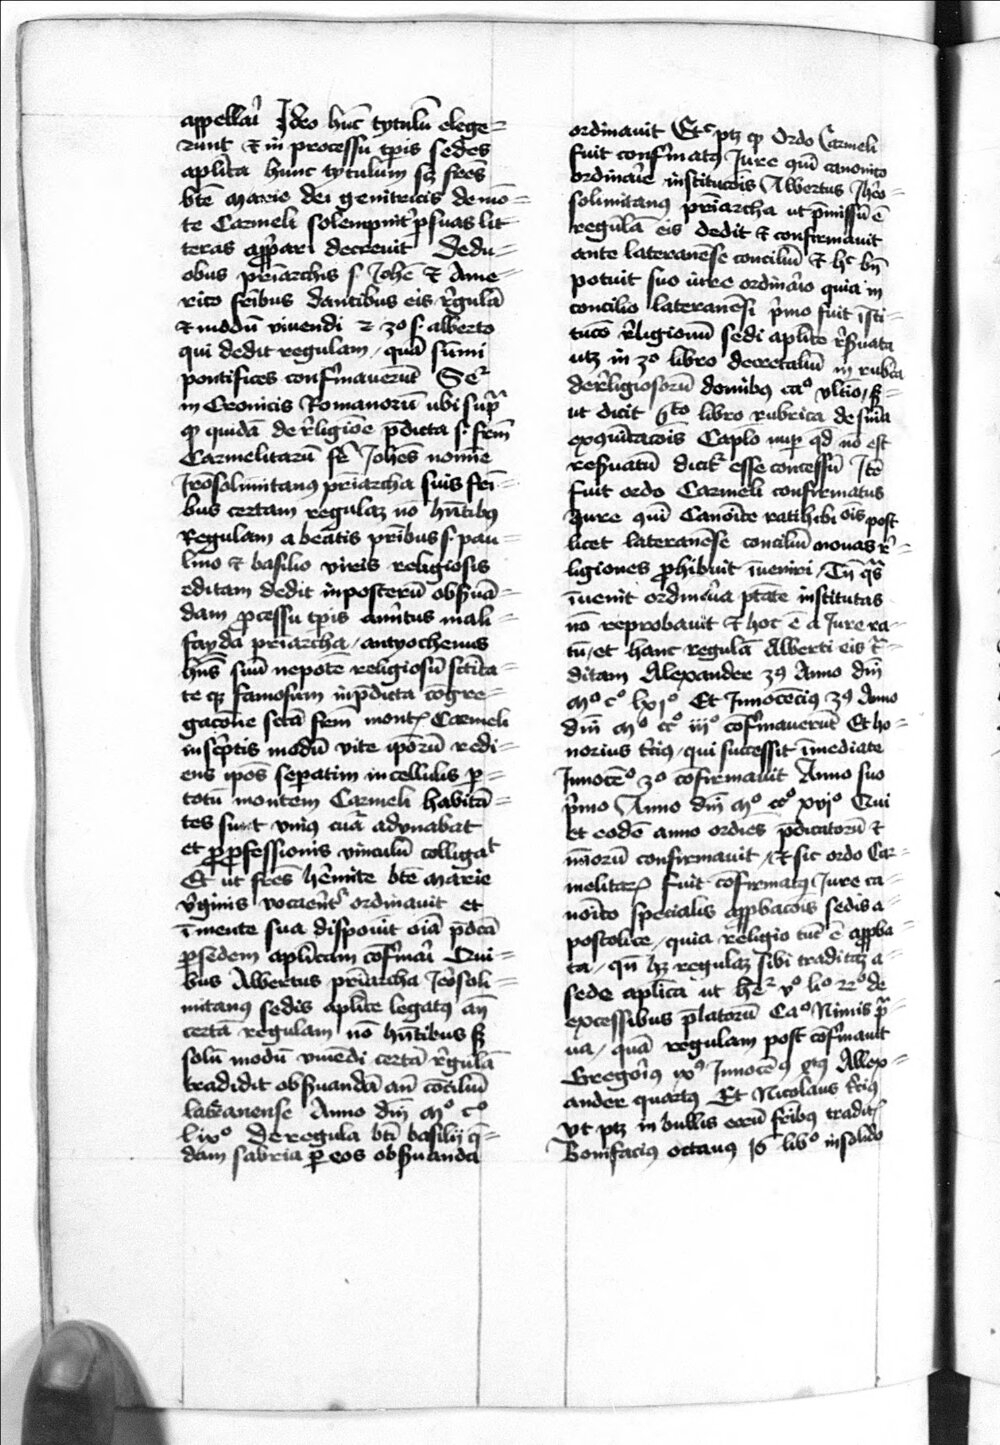 appellari Ideo hūc tytulū elege=
runt & in processu tp̄is sedes
aplīca hunc tytulum scȝ frēs
btē marie dei genitricis de mō=
te Carmeli solempnit' p suas lit
teras app̄ari decrevit Dedu=
obus pr̄iarchis s. Johē & Ame=
rico frībus dantibus eis r̄gulā
& modū vivendi 2 3o s. alberto
qui dedit regulam / quā sūmi
pontifices confirmauerūt
in Cronicis Romanorū ubi sup̄
qȝ quidā de r̄ligiōe p̄dicta s. frm̄
Carmelitarū fr̄ Johēs nomīe
Jerosolimitanus pr̄iarcha suis frī=
bus certam regulaȝ nō hn̄tibus
Regulam a beātis pr̄ibus s. pau=
lino & basilio viris religiosis
editam dedit inposterū obs̄uā=
dam p̄cessu tp̄is amītus mali=
fayda pr̄iarcha / antyochenus
hn̄s suū nepotē religiosū sctīta=
te qȝ famosum in p̄dicta cōgre=
gacōne sctā frm̄ montꝭ Carmeli
in scp̄tis modū vite ip̄orū redi=
ens ip̄os sep̄atim in cellulis p=
totū montem Carmeli habitā=
tes sunt vnius cura advnabat
et p p̄fessionis vinculū colligat
Et ut frēs hermite btē marie
v̄ginis vocarēnt' ordinauit et
ī mente sua disposuit oīa p̄dcā
p sedem aplīcam cōfirmari Qui=
bus Albertus pr̄iarcha Jerosoli=
mitanus sedis aplīce legatus an̄
certā regulam nō hn̄tibus sȝ
solū modū vivēdi certā r̄gulā
tradidit obs̄uandā an̄ cōciliū
lateranense Anno dn̄i Mo Co
lixo De regula btī basilij q̄=
dam sabria p eos obs̄uanda
ordinauit Etc ptȝ qȝ Ordo Carmeli
fuit confirmatus Jure qm̄ canonico
ordinarie institucōis Albertus Jhero=
solimitanus pr̄iarcha ut p̄missū ē
regulā eis dedit & confirmauit
ante lateranēse conciliū & hc bn̄
potuit suo iure ordinario quia in
concilio lateranēsi p̄mo fuit īsti=
tucō r̄ligionū sedi aplīce r̄s̄uata
utȝ in 3o libro decretaliū in rubrica
de r̄ligiosorū domibus cao vltīo / sȝ=
ut dicit 6to libro rubrica de
Caplō nup qd̄ nō est
res̄uatū dicit' esse concessū Itē
fuit ordo Carmeli confirmatus
Jure qm̄ Canonīce ratihibi ōis post
licet lateranēse conciliū nouas r̄=
ligiones p̄hibuit īueniri / Tn̄ qs̄
īuenit ordinaria ptāte institutas
nō reprobauit & hoc ē a Jure ra=
tū / et hanc regulā Alberti eis t̄=
ditam Alexander 3us Anno dn̄i
Mo Co lxjo Et Innocēcius 3us Anno
dn̄i Mo CCo iiijo cōfirmauerūt Et ho=
norius tercius / qui successit īmediate
Innocēo 3o cōfirmauit Anno suo
p̄mo Anno dn̄i Mo CCo xvjo Qui
et eodē anno ordīes p̄dicatorū &
minorū confirmauit / Et sic ordo Car=
melitarꝭ fuit cōfirmatus Jure ca=
nonīco specialis app̄bacōis sedis a=
postolice / quia religio tūc ē app̄ba=
ta / qn̄ hȝ regulaȝ sibi traditaȝ a=
sede aplīca ut her vo lio 22o de
excessibus p̄latorū Cao Nimis p̄=
ua / quā regulam post cōfirmauit
Gregorius ixus Innocēus Allex=
ander quartus Et Nicolaus tercius
vt ptȝ in bullis eorū frībus traditꝭ
Bonifacius octauus J6 libo in solido